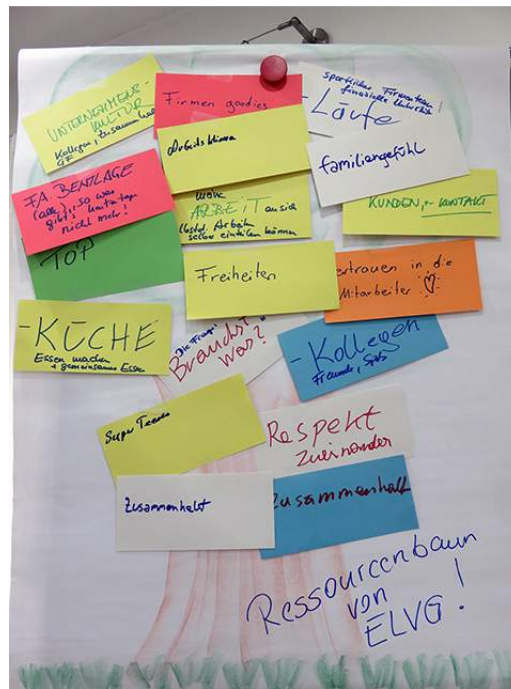 UNTERNEHMENS-
KULTUR
Kollegen, Zusammenhalt
GF
Firmen goodies
sportlicher Firmenteam
finanzielle
- Läufe
Arbeitsklima
familiengefühl
FA. BENTLAGE
gibt's heutzutage
nicht mehr!
TOP
ARBEIT an sich
selbst. Arbeiten
selber einteilen können
KUNDEN,- KONTAKT
Freiheiten
ertrauen in die
Mitarbeiter
-KÜCHE
Essen machen
+ gemeinsames Essen
Die Frage:
Brauchst
was?
- Kollegen
Freunde, Spaß
Super Teams
Respekt
zueinander
Zusammenhalt
Zusammenhalt
Ressourcenbaum
von
ELVG!